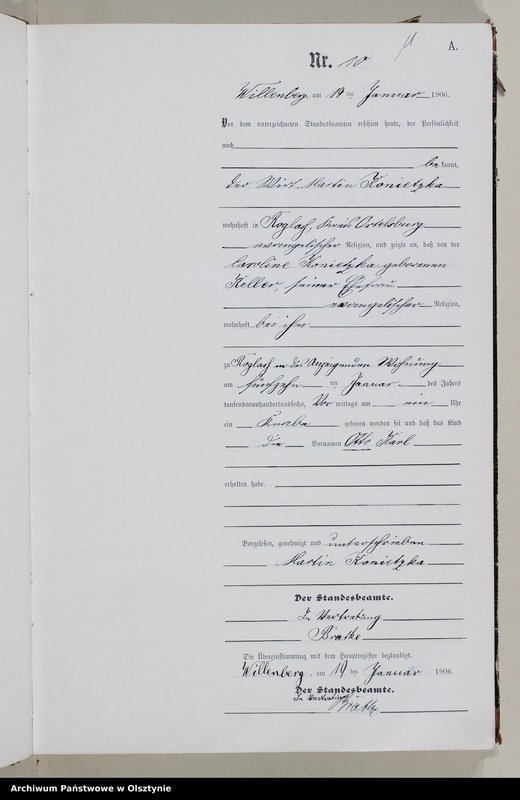 A.
Nr. 10
Willenberg, am 19ten Januar 1906.
Vor dem unterzeichneten Standesbeamten erschien heute, der Persönlichkeit
nach
bekannt,
der Wirt Martin Konietzka
wohnhaft in Roglach, Kreis Ortelsburg
evangelischer Religion, und zeigte an, daß von der
Caroline Konietzka geborenen
Keller, seiner Ehefrau
evangelischer Religion,
wohnhaft bei ihm
zu Roglach in des Anzeigenden Wohnung
am fünfzehnten Januar des Jahres
tausendneunhundertundsechs, Vormittags um ein Uhr
ein Knabe geboren worden sei und daß das Kind
die Vornamen Otto Karl
erhalten habe.
Vorgelesen, genehmigt und unterschrieben
Martin Konietzka
Der Standesbeamte.
In Vertretung
Bratke
Die Übereinstimmung mit dem Hauptregister beglaubigt.
Willenberg, am 19ten Januar 1906.
Der Standesbeamte.
In Vertretung
Bratke
Archiwum Państwowe w Olsztynie